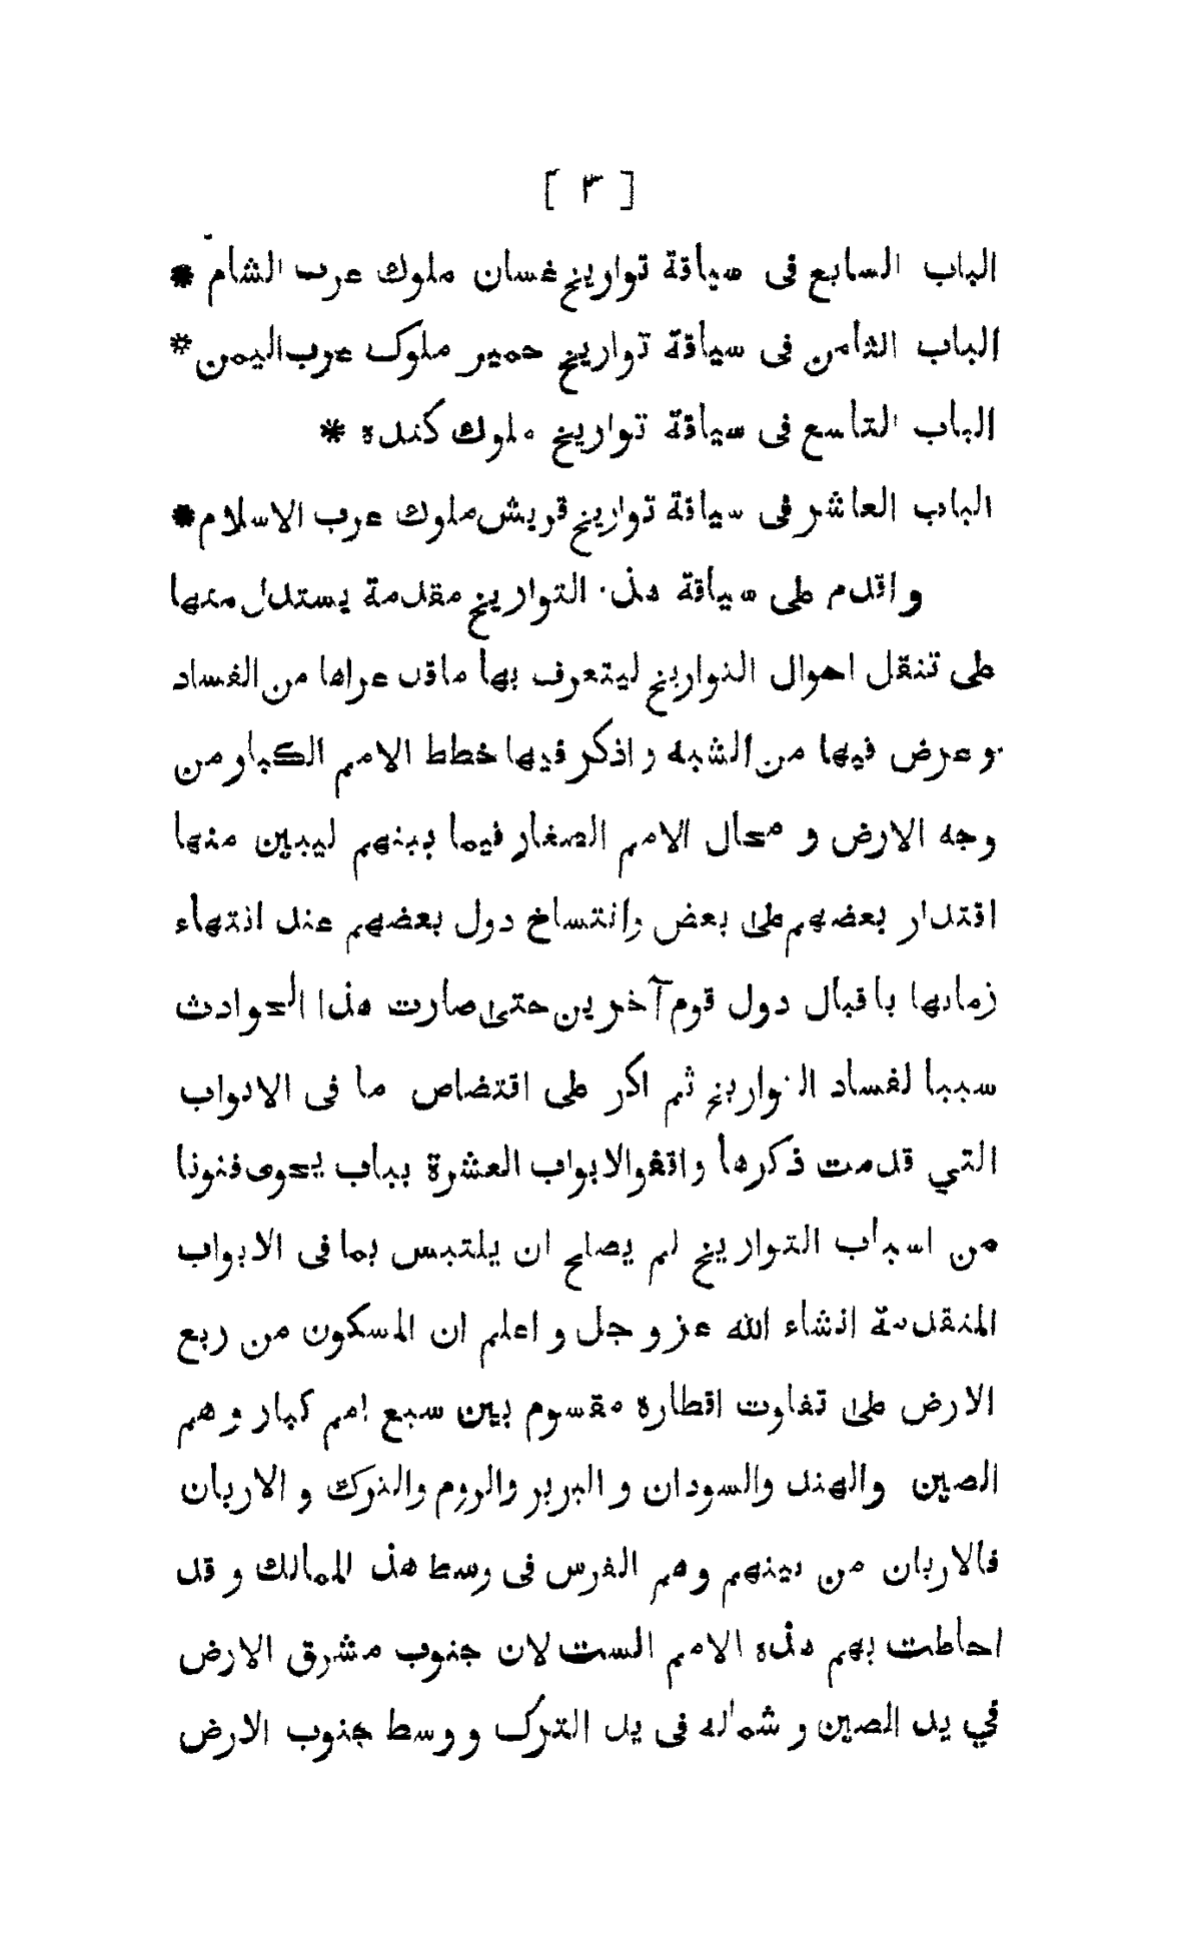 [ ٣ ]
الباب السابع فى سياقة تواريخ غسان ملوك عرب الشام *
الباب الثامن فى سياقة تواريخ حمير ملوك عرب اليمن *
الباب التاسع فى سياقة تواريخ ملوك كندة *
الباب العاشر فى سياقة تواريخ قريش ملوك عرب الاسلام *
و اقدم على سياقة هذه التواريخ مقدمة يستدل منها
على تنقل احوال التواريخ ليتعرف بها ماقد عراها من الفساد
و عرض فيها من الشبه و اذكر فيها خطط الامم الكبار من
وجه الارض و محال الامم الصغار فيما بينهم ليبين منها
اقتدار بعضهم على بعض وانتساخ دول بعضهم عند انتهاء
زمانها باقبال دول قوم آخرين حتى صارت هذا الحوادث
سببا لفساد التواريخ ثم اكر على اقتضاص ما فى الابواب
التي قدمت ذكرها و اقفو الابواب العشرة بباب يحوى فنونا
من اسباب التواريخ لم يصلح ان يلتبس بما فى الابواب
المتقدمة انشاء الله عز و جل و اعلم ان المسكون من ربع
الارض على تفاوت اقطاره مقسوم بين سبع امم كبار و هم
الصين والهند والسودان و البربر والروم والترك و الاريان
فالاريان من بينهم و هم الفرس فى وسط هذ الممالك و قد
احاطت بهم هذه الامم الست لان جنوب مشرق الارض
في يد الصين و شماله فى يد الترك و وسط جنوب الارض